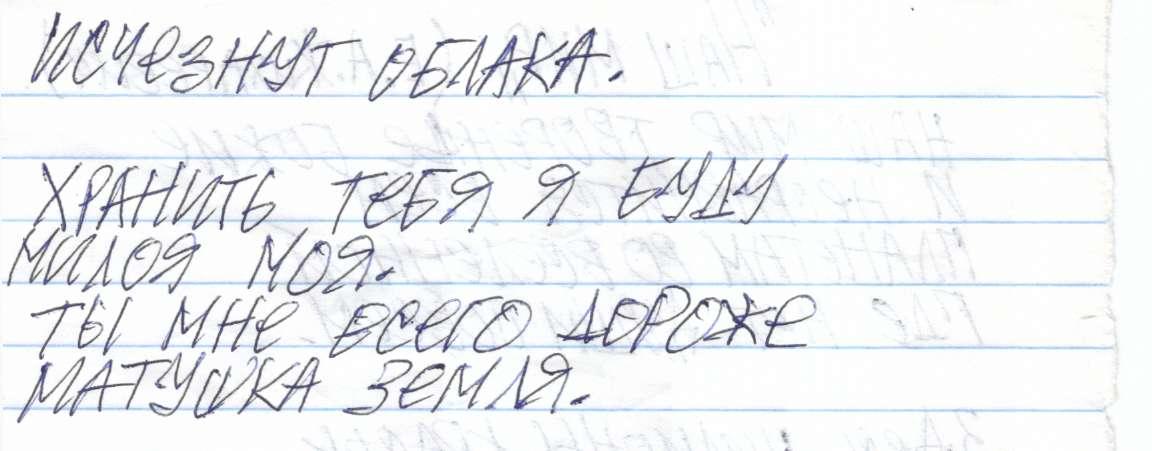 ИСЧЕЗНУТ ОБЛАКА.
ХРАНИТЬ ТЕБЯ Я БУДУ
МИЛОЯ МОЯ.
ТЫ МНЕ ВСЕГО ДОРОЖЕ
МАТУШКА ЗЕМЛЯ.